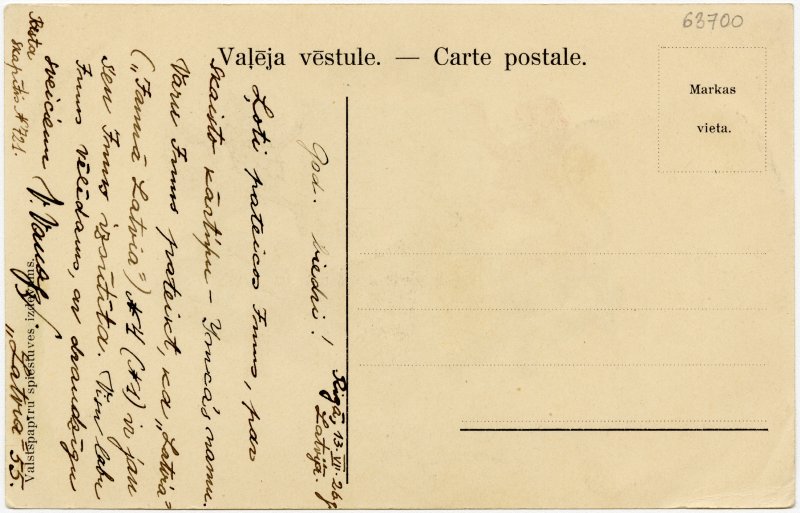 63700
Vaļēja vēstule. — Carte postale.
Markas
vieta.
Rīgā, 13. VII. 26 g.
Latvijā.
God. biedri!
Ļoti pateicos Jums, par
skaisto kārtiņu – Ymca's namu.
Varu Jums pateikt, ka „Latvia"
(„Jaunā Latvia") № 4 (№ 1) ir jau
sen Jums izsūtīta. Visu labu
Jums vēlēdams, ar draudzīgu
sveicienu
„Latvia" 55.
Pasta
skapītis № 721.
Valstspapīru spiestuves izdevums